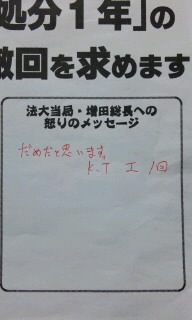 処分１年」の
撤回を求めます
法大当局・増田総長への
怒りのメッセージ
だめだと思います。
K.T 工 1回